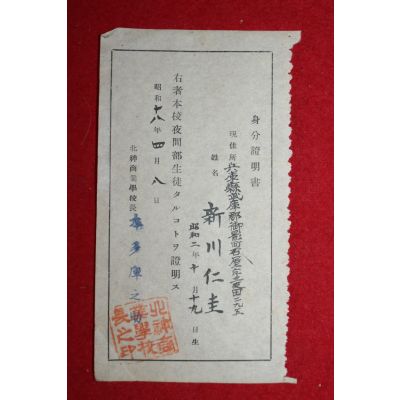 身分證明書
現住所 兵庫縣武庫郡御影町
姓名 新川仁圭
昭和二年十月十九日生
右者本校夜間部生徒タルコトヲ證明ス
昭和十八年四月八日
北神商業學校長 多庫之助
北神商業學校長之印